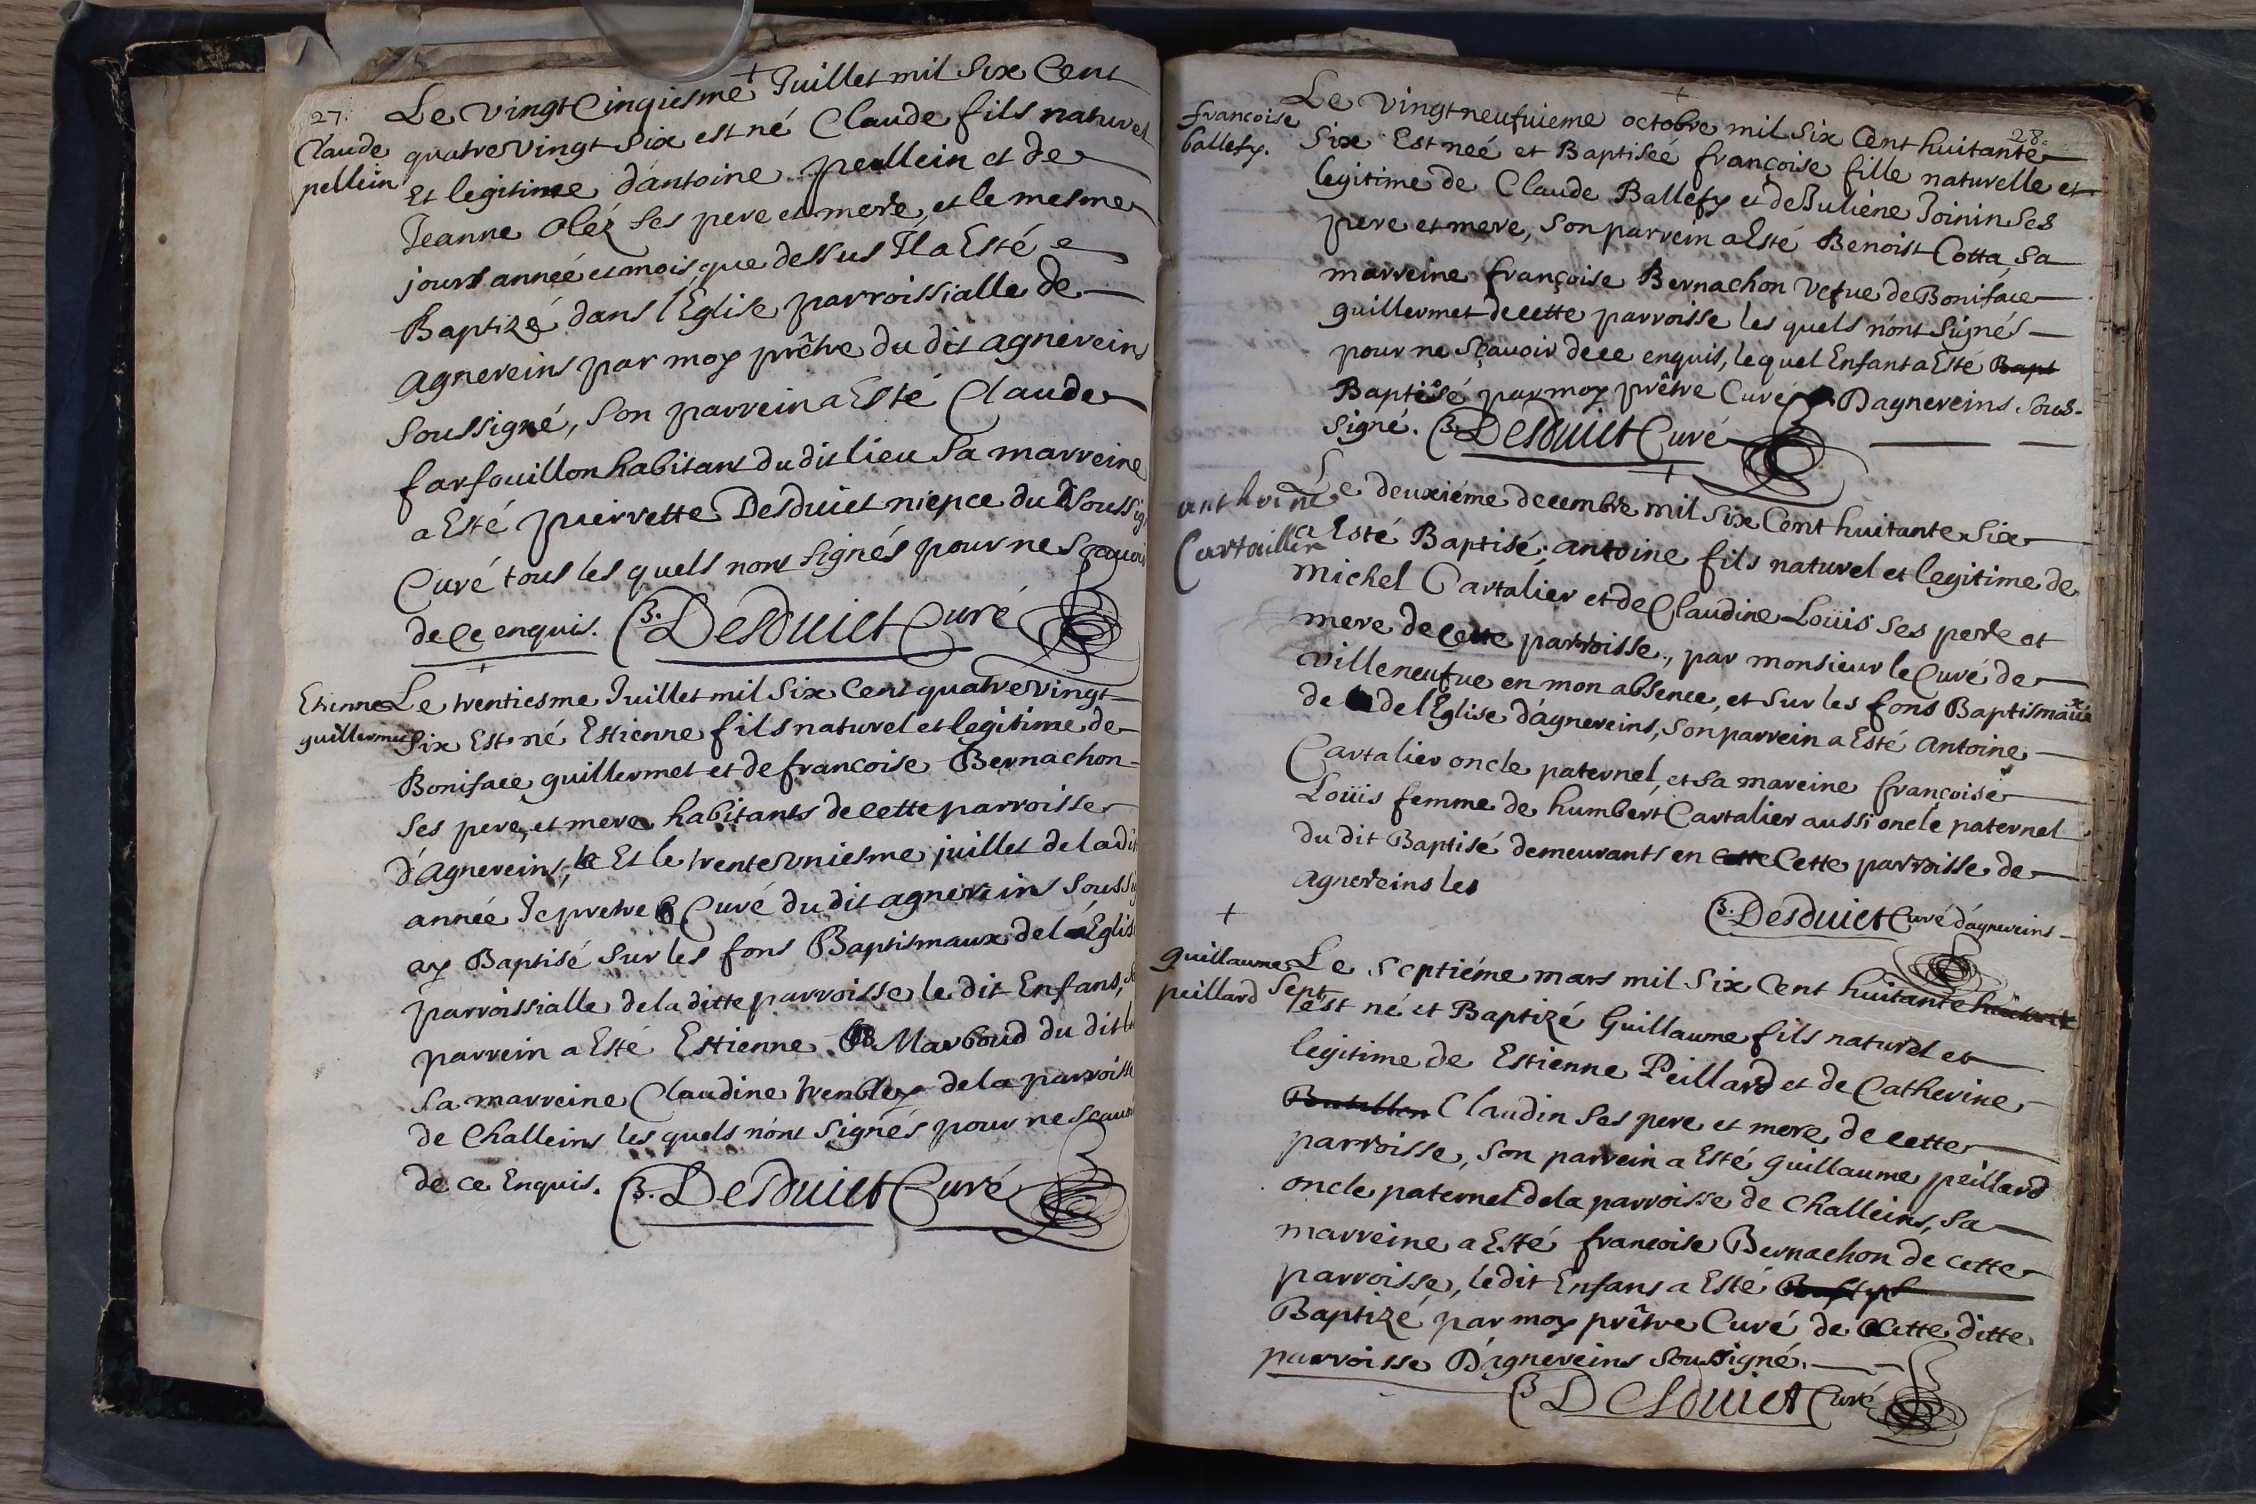 27.
Le vingt Cinqiesme Juillet mil Six Cent
Claude
pellein
quatrevingt Six est né Claude fils naturel
Et legitime d'antoine pellein et de
Jeanne Oléz ses pere et mere, et le mesme
jours année et mois que dessus Il a Esté
Baptizé dans l'Eglise parroissialle de
agnereins par moy prêtre du dit agnereins
soussigné, son parrein a Esté Claude
farfouillon habitant du dit lieu sa marreine
a Esté pierrette Desduict niepce du soussig
Curé tous les quels nont signés pour ne sçavoi
de Ce enquis. B. Desduict Curé
Etienne
guillermet
Le trentiesme Juillet mil Six Cent quatrevingt
Six Est né Estienne fils naturel et legitime de
Boniface guillermet et de francoise Bernachon
ses pere, et mere habitants de cette parroisse
d'Agnereins, Et le trente uniesme juillet de la dit
année Je pretre Curé du dit agnereins soussig
ay Baptisé sur les fons Baptismaux de l'Eglise
parroissialle de la ditte parroisse le dit Enfans,
parrein a Esté Estienne Marboud du dit
sa marreine Claudine trembley de la parroisse
de Challeins les quels n'ont signés pour ne sçavoi
de ce Enquis. B. Desduict Curé
28.
francoise
ballefy.
Le vingt neufuieme octobre mil six Cent huitante
Six Est neé et Baptiseé françoise fille naturelle et
legitime de Claude Ballefy et de Juliene Joinin ses
pere et mere, son parrein a Esté Benoist Cotta, sa
marreine françoise Bernachon vefue de Boniface
guillermet de cette parroisse les quels n'ont signés
pour ne sçavoir de ce enquis, lequel Enfant a Esté Bapt
Baptisé par moy prêtre Curé Dagnereins sous-
signé. B. Desduict Curé
anthoine
Cartaillier
Le deuxiéme decembre mil six Cent huitante six
a Esté Baptisé, antoine fils naturel et legitime de
Michel Cartalier et de Claudine Loüis ses pere et
mere de cette parroisse, par monsieur le Curé de
villeneufue en mon absence, et sur les fons Baptismaux
de de l'Eglise d'agnereins, son parrein a Esté antoine
Cartalier oncle paternel, et sa mareine françoise
Loüis femme de humbert Cartalier aussi oncle paternel
du dit Baptisé demeurants en cette Cette parroisse de
agnereins les
B. Desduict Curé d'agnereins
guillaume
peillard
Le septiéme mars mil six Cent huitante
Sept
est né et Baptizé Guillaume fils naturel et
legitime de Estienne Peillard et de Catherine
Claudin ses pere et mere de cette
parroisse, son parrein a Esté guillaume peillard
oncle paternel de la parroisse de Challeins, sa
marreine a Esté francoise Bernachon de cette
parroisse, le dit Enfans a Esté
Baptizé par moy prêtre Curé de Cette ditte
parroisse D'agnereins soussigné.
B Desduict Curé